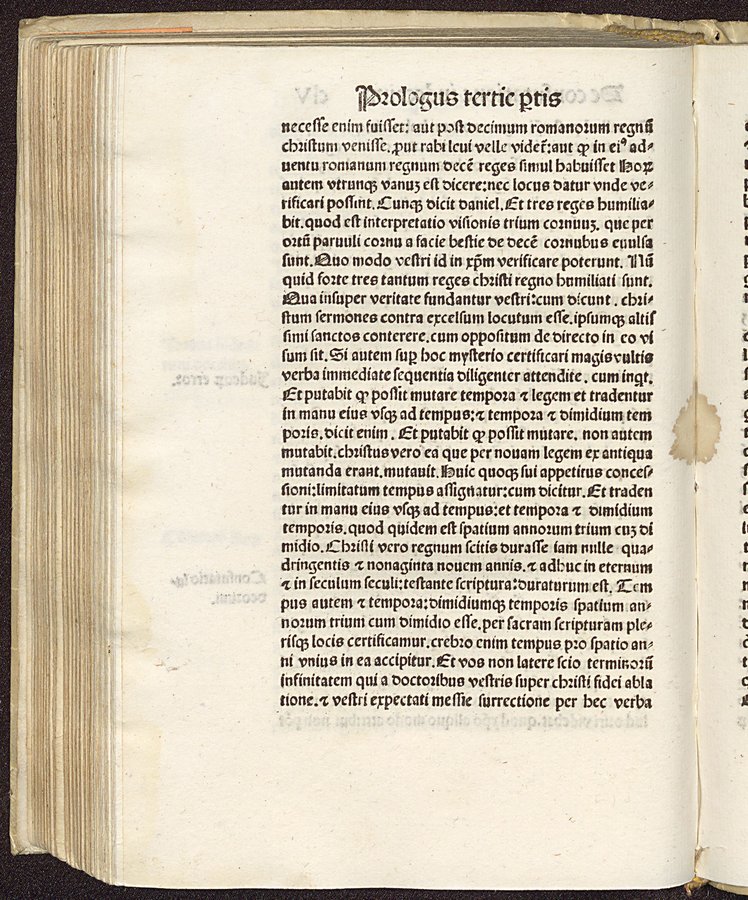 Prologus tertie ꝑtis
necesse enim fuisset: aut post decimum romanorum regnũ
christum venisse. ꝓut rabi leui velle videt᷑: aut ꝙ in eiꝰ ad⸗
uentu romanum regnum decẽ reges simul habuisset Hoꝝ
autem vtrunqꝫ vanuꝫ est dicere: nec locus datur vnde ve⸗
rificari possint. Cunqꝫ dicit daniel. Et tres reges humilia⸗
bit. quod est interpretatio visionis trium cornuuꝫ. que per
ortũ paruuli cornu a facie bestie de decẽ cornubus euulsa
sunt. Quo modo vestri id in xp̃m verificare poterunt. Nũ
quid forte tres tantum reges christi regno humiliati sunt.
Qua insuper veritate fundantur vestri: cum dicunt. chri⸗
stum sermones contra excelsum locutum esse. ipsumqꝫ altis
simi sanctos conterere. cum oppositum de directo in eo vi
sum sit. Si autem suꝑ hoc mysterio certificari magis vultis
verba immediate sequentia diligenter attendite. cum inqt.
Et putabit ꝙ possit mutare tempora ⁊ legem et tradentur
in manu eius vsqꝫ ad tempus: ⁊ tempora ⁊ dimidium tem
poris. dicit enim. Et putabit ꝙ possit mutare. non autem
mutabit. christus vero ea que per nouam legem ex antiqua
mutanda erant. mutauit. Huic quoqꝫ sui appetitus conces⸗
sioni: limitatum tempus assignatur: cum dicitur. Et traden
tur in manu eius vsqꝫ ad tempus: et tempora ⁊ dimidium
temporis. quod quidem est spatium annorum trium cuꝫ di
midio. Christi vero regnum scitis durasse iam nulle qua⸗
dringentis ⁊ nonaginta nouem annis. ⁊ adhuc in eternum
⁊ in seculum seculi: testante scriptura: duraturum est. Tem
pus autem ⁊ tempora: dimidiumqꝫ temporis spatium an⸗
norum trium cum dimidio esse. per sacram scripturam ple⸗
risqꝫ locis certificamur. crebro enim tempus pro spatio an⸗
ni vnius in ea accipitur. Et vos non latere scio terminorũ
infinitatem qui a doctoribus vestris super christi fidei abla
tione. ⁊ vestri expectati messie surrectione per hec verba